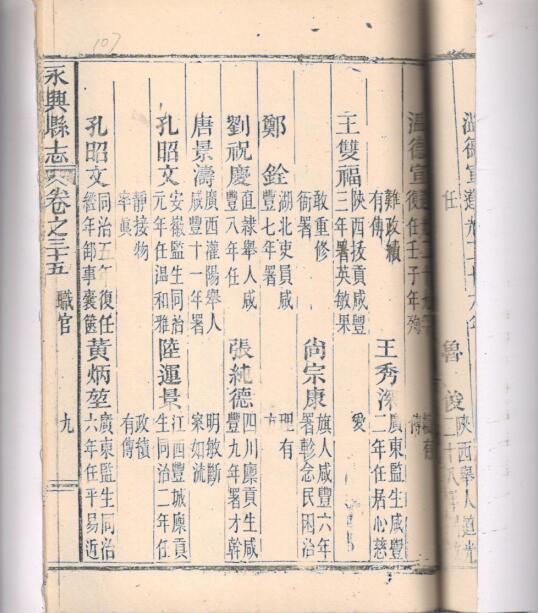 107
溫德宣
任
魯
陝西舉人道光
溫德宣
復任壬子年殉
難政績
有傳
王秀深
廣東監生咸豐
二年任居心慈
愛
王雙福
陝西拔貢咸豐
三年署英敏果
敢重修
衙署
尚宗康
旗人咸豐六年
署軫念民困治
理有
方
鄭銓
湖北吏員咸
豐七年署
劉祝慶
直隸舉人咸
豐八年任
張純德
四川廩貢生咸
豐九年署才幹
明敏斷
案如流
唐景濤
廣西灌陽舉人
咸豐十一年署
孔昭文
安徽監生同治
元年任溫和雅
靜接物
率真
陸運景
江西豐城廩貢
生同治二年任
政績
有傳
孔昭文
同治五年復任
經年卸事囊篋
黃炳堃
廣東監生同治
六年任平易近
永興縣志 卷之三十五 職官 九